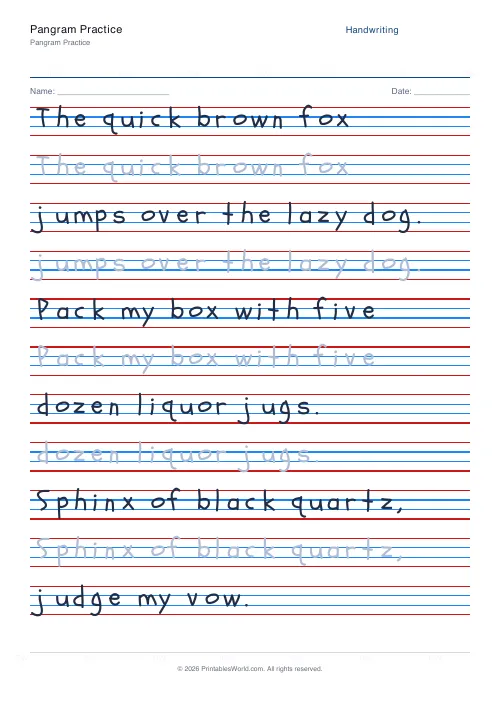 Pangram Practice
Handwriting
Pangram Practice
Name:
Date:
The quick brown fox
The quick brown fox
jumps over the lazy dog.
jumps over the lazy dog.
Pack my box with five
Pack my box with five
dozen liquor jugs.
dozen liquor jugs.
Sphinx of black quartz,
Sphinx of black quartz,
judge my vow.
© 2026 PrintablesWorld.com. All rights reserved.